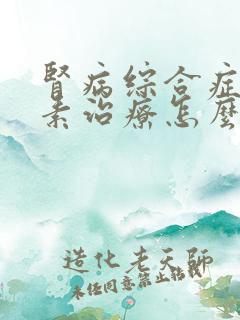 腎病綜合症
素治療怎麼
造化老天師
未任同意禁止轉載